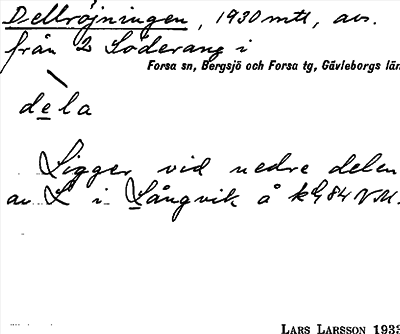 Dellröjningen, 1930 mtt, avs.
från 2 Söderäng i
Forsa sn, Bergsjö och Forsa tg, Gävleborgs län
dela
Ligger vid nedre delen
av L i Långvik å
LARS LARSSON 1933